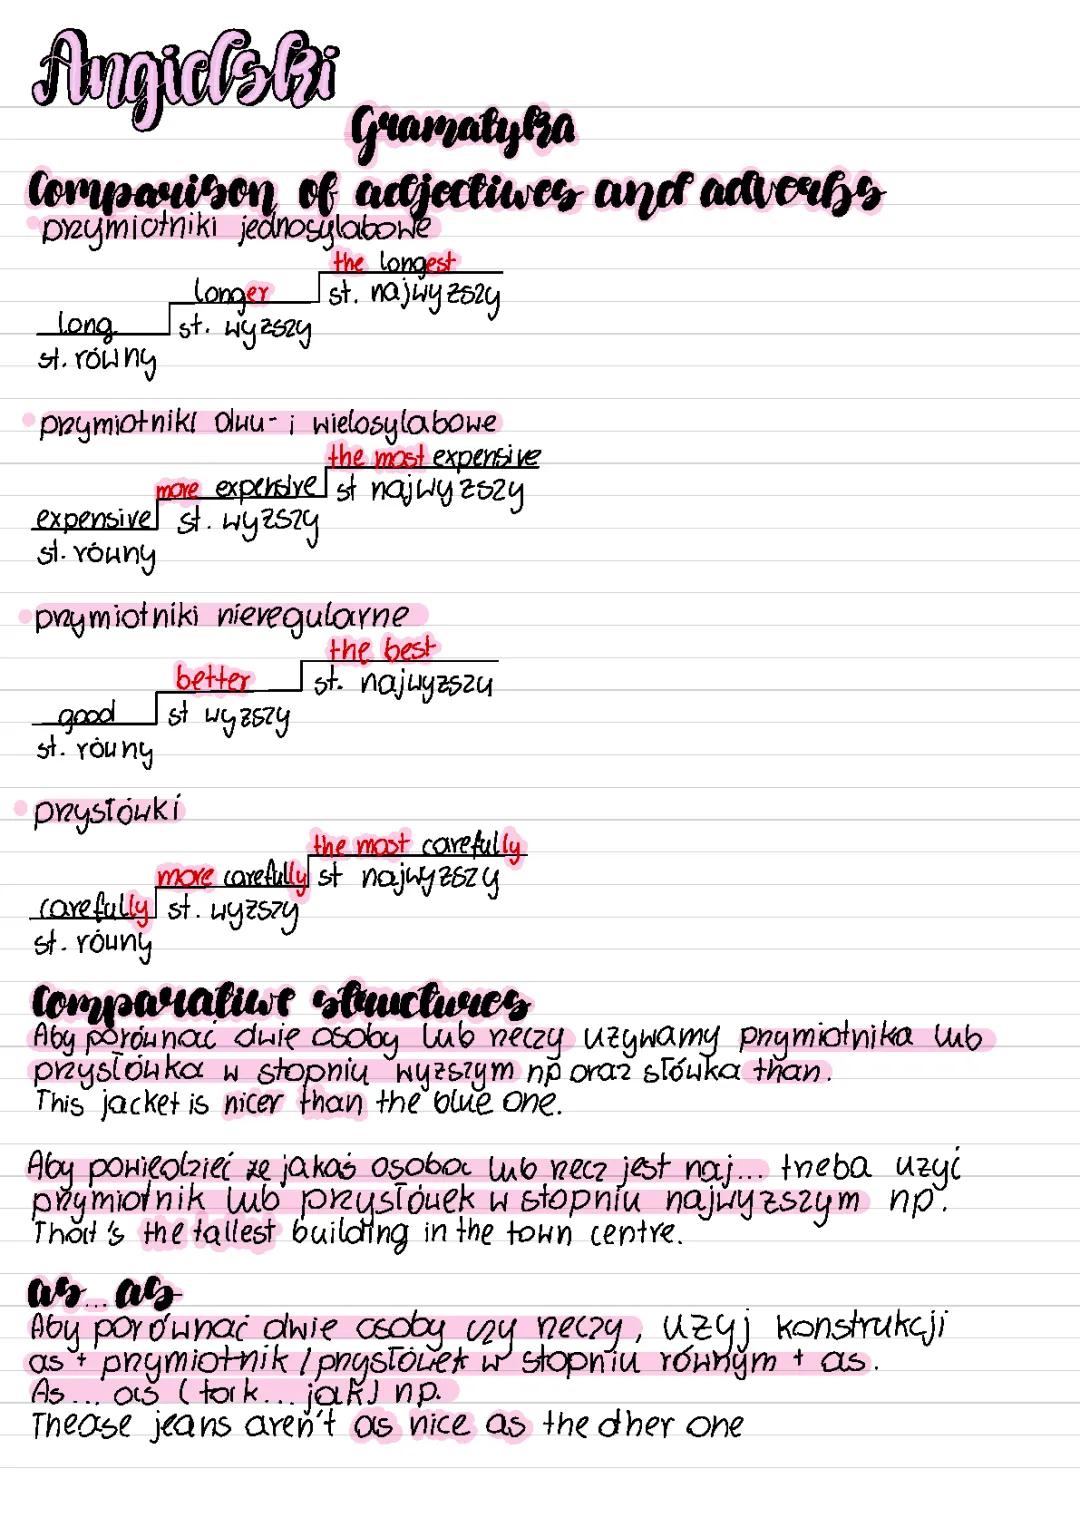 Angielski
Gramatyka
Comparison of adjectiwes and adverbs
przymiotniki jednosylabowe
the longest
longer st. najwyzszy
long st. wyzszy
st. równy
przymiotniki dwu- i wielosylabowe
the most expensive
more expensive st najwyzszy
expensive st. wyzszy
st. równy
przymiotniki nieregularne
the best
better st. najwyzszy
good st wyzszy
st. równy
przysłówki
the most carefully
more carefully st najwyzszy
carefully st. wyzszy
st. równy
Comparatiwe structures
Aby porównać dwie osoby lub rzeczy uzywamy przymiotnika lub
przysłówka w stopniu wyzszym np oraz słówka than.
This jacket is nicer than the blue one.
Aby powiedzieć ze jakaś osoba lub rzecz jest naj... trzeba uzyć
przymiotnik lub przysłówek w stopniu najwyzszym np.
That's the tallest building in the town centre.
as... as
Aby porównać dwie osoby czy rzeczy, uzyj konstrukcji
as + przymiotnik / przysłówek w stopniu równym + as.
As... as (tak... jak) np.
Thease jeans aren't as nice as the other one